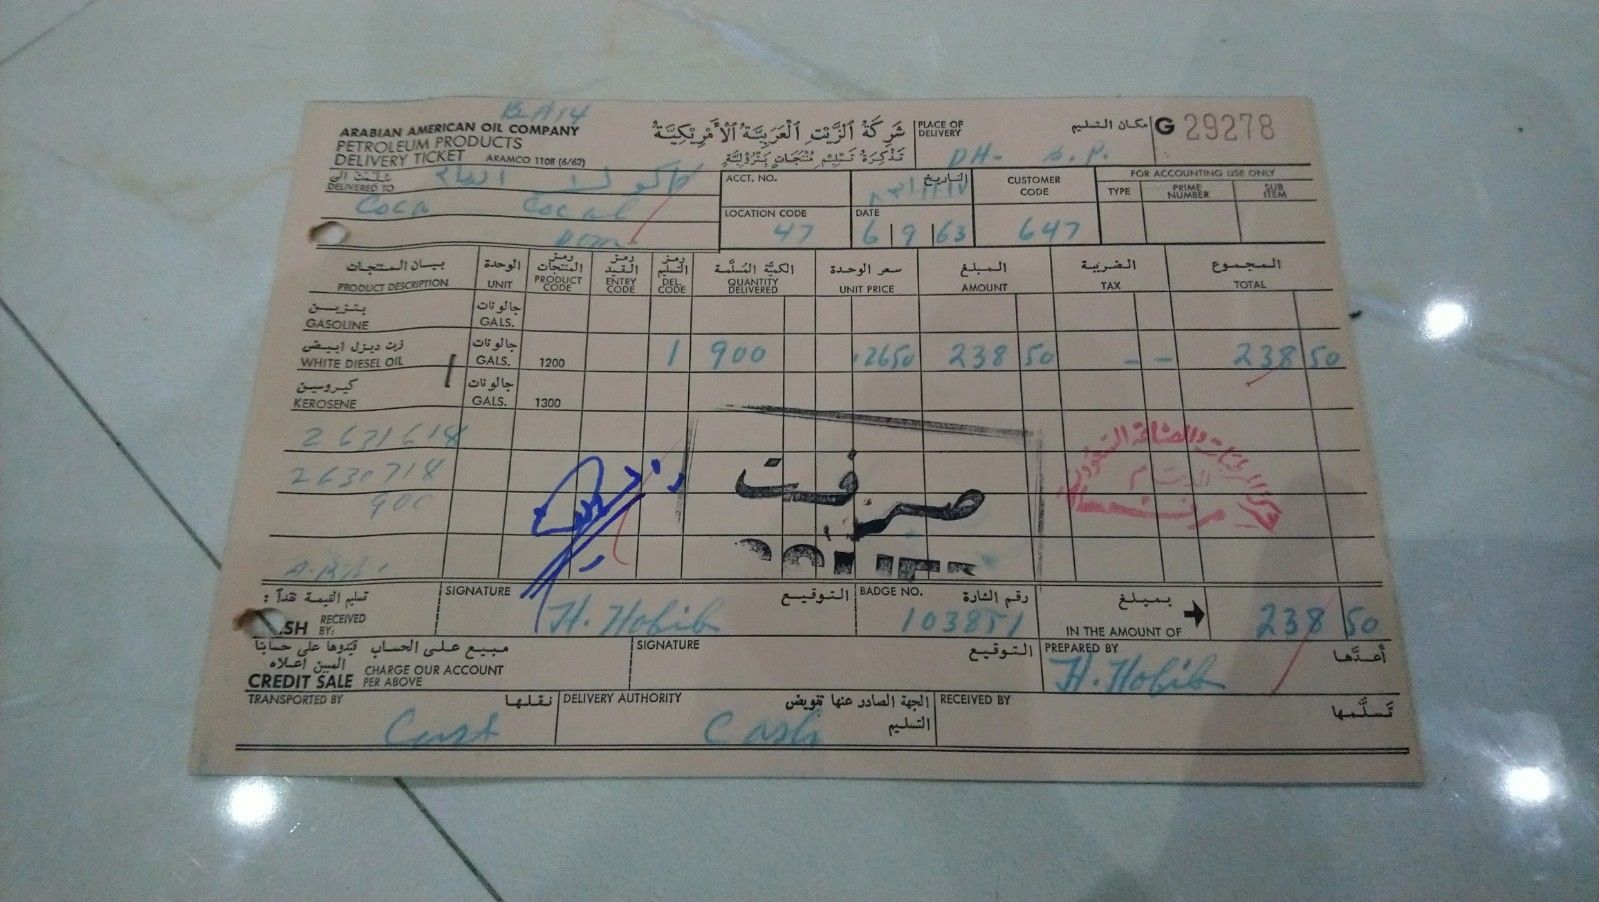 B.A 14
ARABIAN AMERICAN OIL COMPANY
PETROLEUM PRODUCTS
DELIVERY TICKET ARAMCO 1108 (6/62)
شَرِكَة الزَّيْت الْعَرَبِيَّة الْأَمْرِيكِيَّة
تَذْكِرَة تَسْلِيم مُنْتَجَات بِتْرُولِيَّة
PLACE OF DELIVERY مكان التسليم
DH-
G 29278
سُلِّمَت الى
DELIVERED TO
كاكولا الدمام
Coca
ACCT. NO.
التاريخ
CUSTOMER CODE
FOR ACCOUNTING USE ONLY
TYPE PRIME NUMBER SUB ITEM
LOCATION CODE 47
DATE 6 9 63
647
بيان المنتجات الوحدة رمز المنتجات رمز القيد رمز التسليم الكميَّة المُسلَّمة سعر الوحدة المبلغ الضريبة المجموع
PRODUCT DESCRIPTION UNIT PRODUCT CODE ENTRY CODE DEL. CODE QUANTITY DELIVERED UNIT PRICE AMOUNT TAX TOTAL
بنزين جالونات
GASOLINE GALS.
زيت ديزل ابيض جالونات
WHITE DIESEL OIL GALS. 1200 1 900 .2650 238 50 - - 238 50
كيروسين جالونات
KEROSENE GALS. 1300
2631618
2630718
900
صرفت
الدمام
تسليم القيمة نقداً :
SH RECEIVED BY:
SIGNATURE التوقيع
H. Hobib
BADGE NO. رقم الشارة
103851
بمبلغ
IN THE AMOUNT OF
238 50
مبيع على الحساب قيّدوها على حسابنا المبين اعلاه
CREDIT SALE CHARGE OUR ACCOUNT PER ABOVE
SIGNATURE التوقيع
PREPARED BY أعدَّها
H. Hobib
TRANSPORTED BY نقلها
Cust
DELIVERY AUTHORITY الجهة الصادر عنها تفويض التسليم
Cash
RECEIVED BY تَسلَّمها